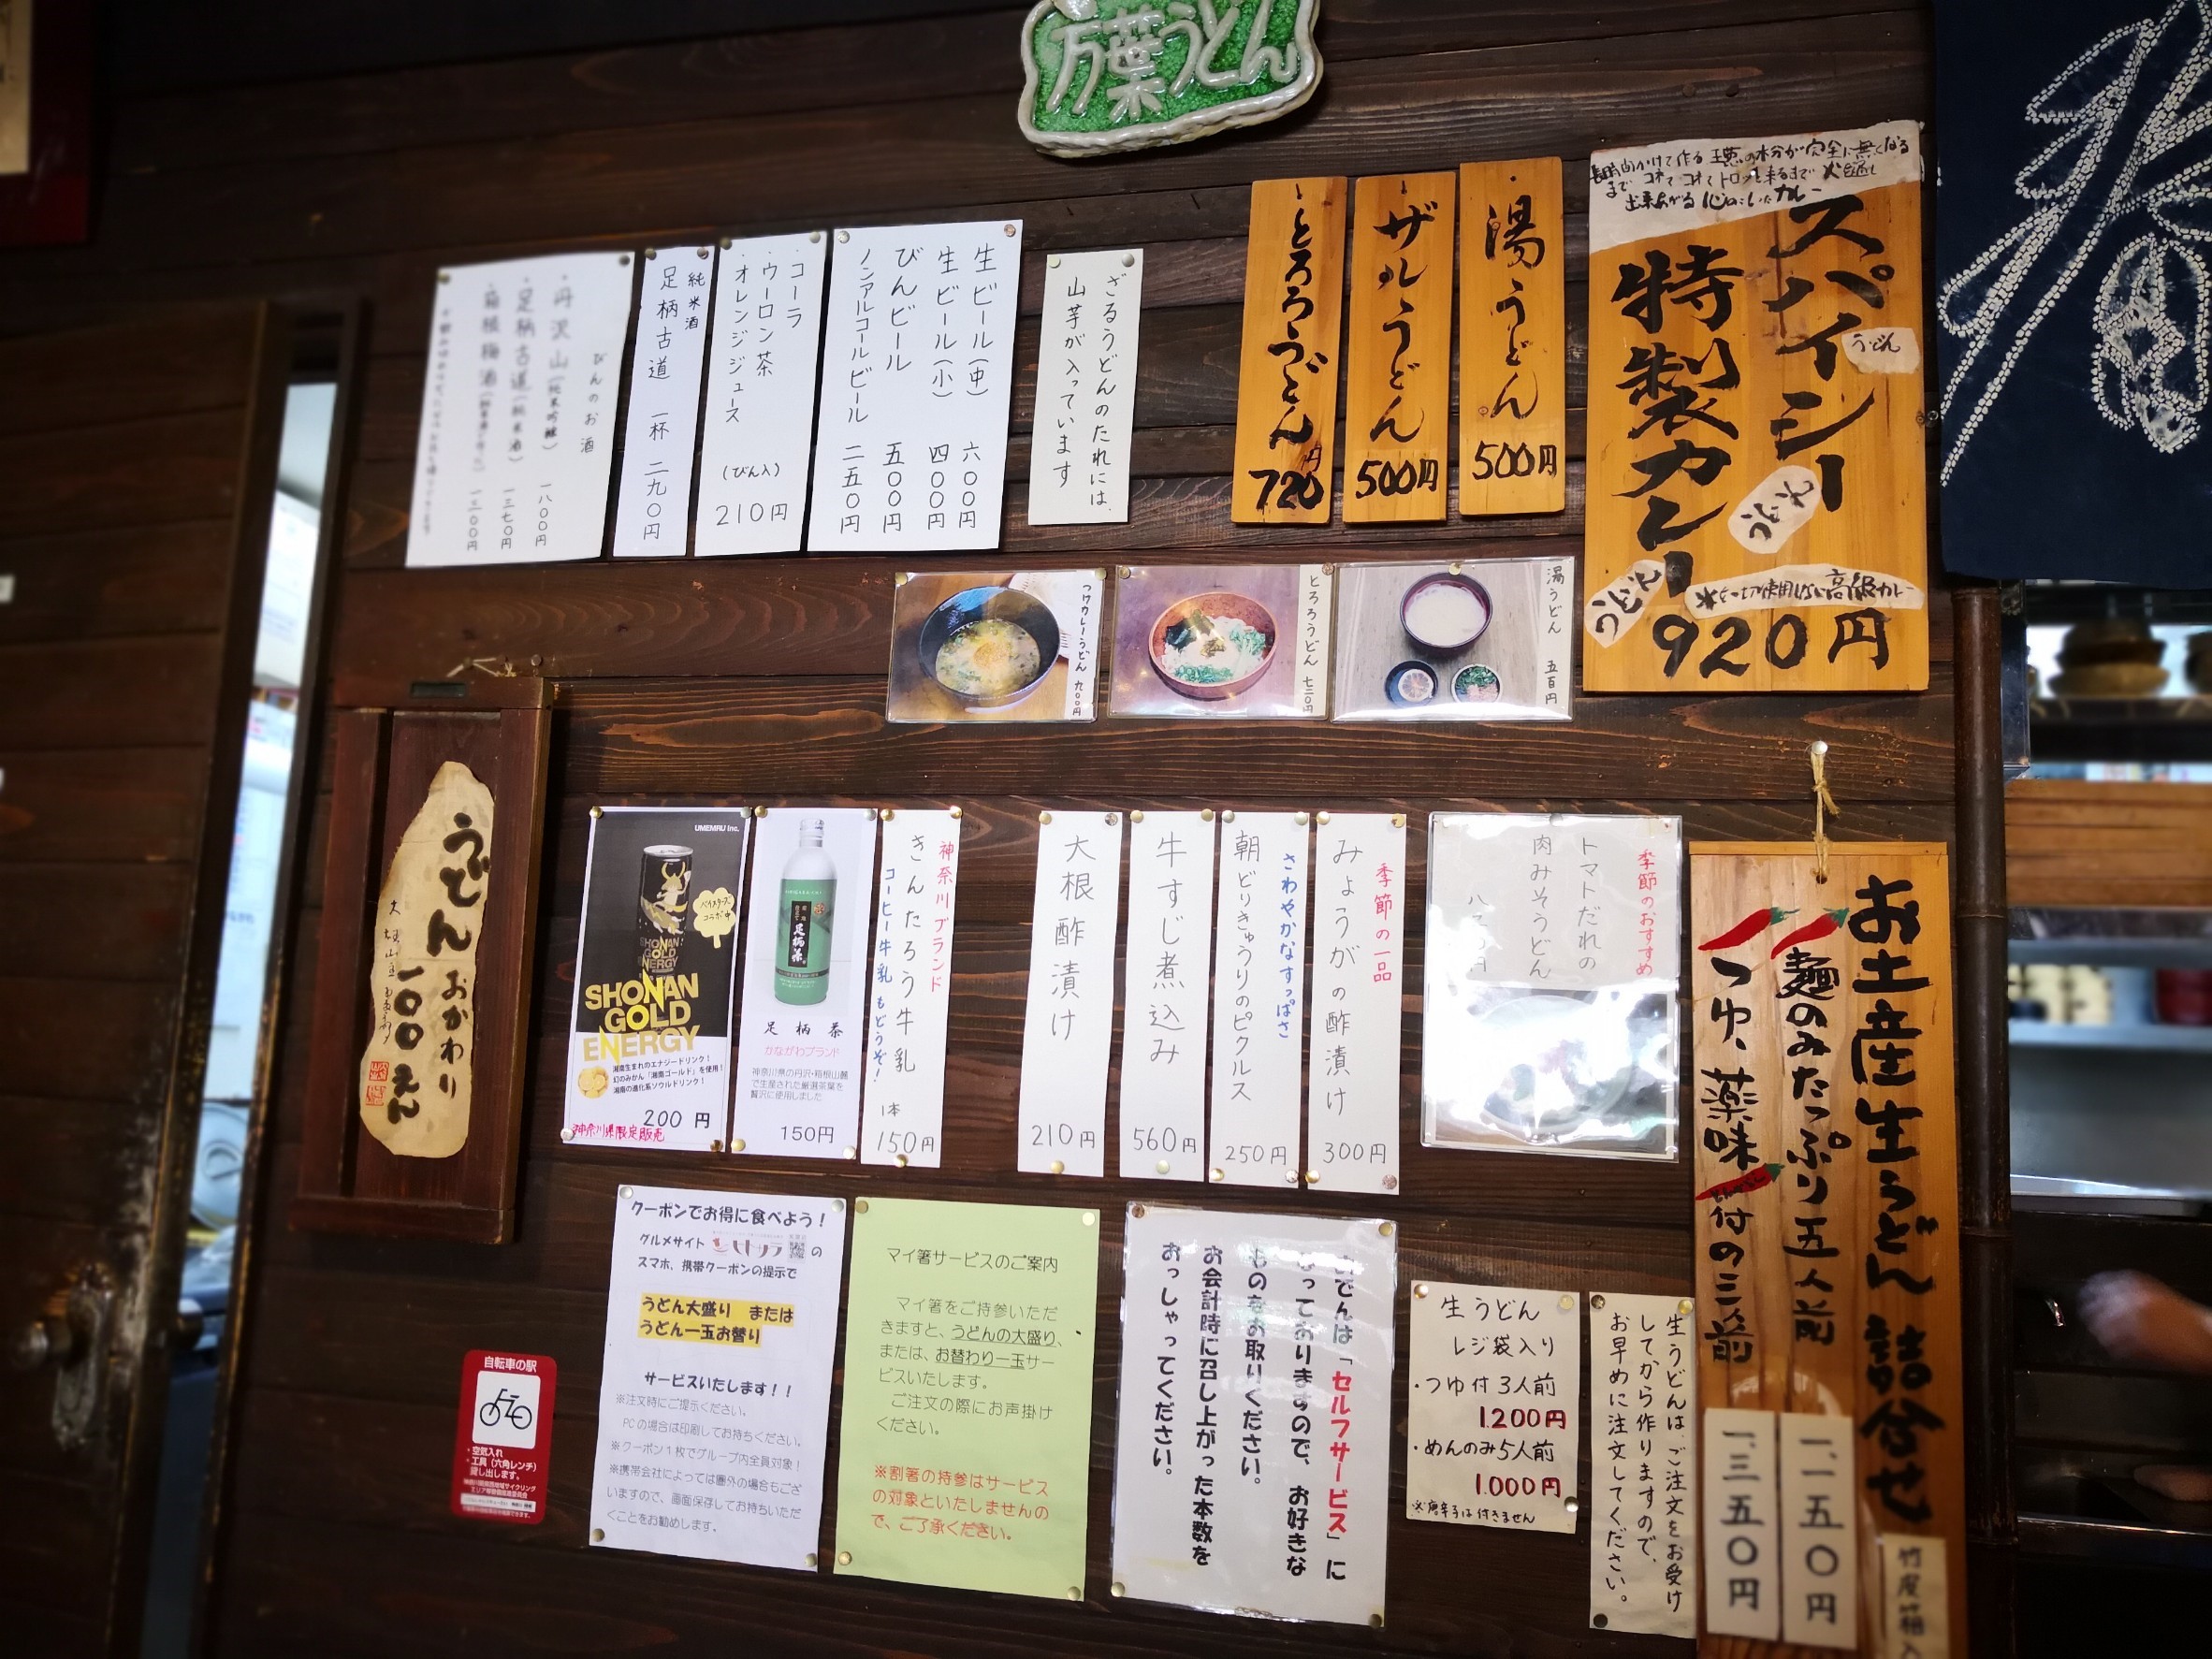 万葉うどん
スパイシー
うどん
特製カレー
うどん
920円
湯うどん
500円
ザルうどん
500円
とろろうどん
720円
ざるうどんのたれには、
山芋が入っています
生ビール(中) 六〇〇円
生ビール(小) 四〇〇円
びんビール 五〇〇円
ノンアルコールビール 二五〇円
・コーラ
・ウーロン茶
・オレンジジュース
(びん入)
210円
純米酒
足柄古道 一杯 二九〇円
びんのお酒
・丹沢山(純米吟醸) 一八〇〇円
・足柄古道(純米酒) 一三七〇円
湯うどん 五百円
とろろうどん 七二〇円
つけカレーうどん 九〇〇円
うどん おかわり
一〇〇えん
UMEMARU Inc.
SHONAN
GOLD
ENERGY
湘南生まれのエナジードリンク!
幻のみかん「湘南ゴールド」を使用!
湘南の進化系ソウルドリンク!
200円
神奈川県限定販売
足柄茶
足柄茶
かながわブランド
神奈川県の丹沢・箱根山麓
で生産された厳選茶葉を
贅沢に使用しました
150円
神奈川ブランド
きんたろう牛乳
コーヒー牛乳もどうぞ!
1本
150円
大根酢漬け
210円
牛すじ煮込み
560円
さわやかなすっぱさ
朝どりきゅうりのピクルス
250円
季節の一品
みょうがの酢漬け
300円
季節のおすすめ
トマトだれの
肉みそうどん
お土産生うどん 詰合せ
麺のみたっぷり五人前
つゆ、薬味
付の三人前
一、一五〇円
一、三五〇円
クーポンでお得に食べよう!
グルメサイト
の
スマホ、携帯クーポンの提示で
うどん大盛り または
うどん一玉お替り
サービスいたします!!
※注文時にご提示ください。
PCの場合は印刷してお持ちください。
※クーポン1枚でグループ内全員対象!
※携帯会社によっては圏外の場合もござ
いますので、画面保存してお持ちいただ
くことをお勧めします。
マイ箸サービスのご案内
マイ箸をご持参いただ
きますと、うどんの大盛り、
または、お替わり一玉サー
ビスいたします。
ご注文の際にお声掛け
ください。
※割箸の持参はサービス
の対象といたしませんの
で、ご了承ください。
おでんは「セルフサービス」に
なっておりますので、お好きな
ものをお取りください。
お会計時に召し上がった本数を
おっしゃってください。
生うどん
レジ袋入り
・つゆ付3人前
1.200円
・めんのみ5人前
1.000円
※唐辛子は付きません
生うどんは、ご注文をお受け
してから作りますので、
お早めに注文してください。
自転車の駅
・空気入れ
・工具(六角レンチ)
貸し出します。